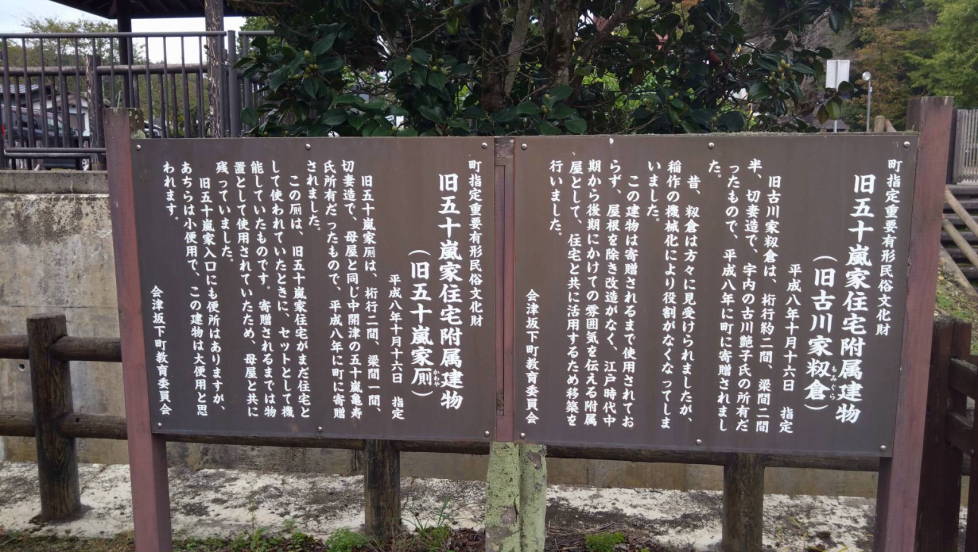 町指定重要有形民俗文化財
旧五十嵐家住宅附属建物
（旧古川家籾倉）
もみぐら
平成八年十月十六日　指定
旧古川家籾倉は、桁行約二間、梁間二間
半、切妻造で、字内の古川艶子氏の所有だ
ったもので、平成八年に町に寄贈されまし
た。
昔、籾倉は方々に見受けられましたが、
稲作の機械化により役割がなくなってしま
いました。
この建物は寄贈されるまで使用されてお
らず、屋根を除き改造がなく、江戸時代中
期から後期にかけての雰囲気を伝える附属
屋として、住宅と共に活用するため移築を
行いました。
会津坂下町教育委員会
町指定重要有形民俗文化財
旧五十嵐家住宅附属建物
（旧五十嵐家厠）
かわや
平成八年十月十六日　指定
旧五十嵐家厠は、桁行二間、梁間一間、
切妻造で、母屋と同じ中開津の五十嵐亀寿
氏所有だったもので、平成八年に町に寄贈
されました。
この厠は、旧五十嵐家住宅がまだ住宅と
して使われていたときに、セットとして機
能していたものです。寄贈されるまでは物
置として使用されていたため、母屋と共に
残っていました。
旧五十嵐家入口にも便所はありますが、
あちらは小便用で、この建物は大便用と思
われます。
会津坂下町教育委員会